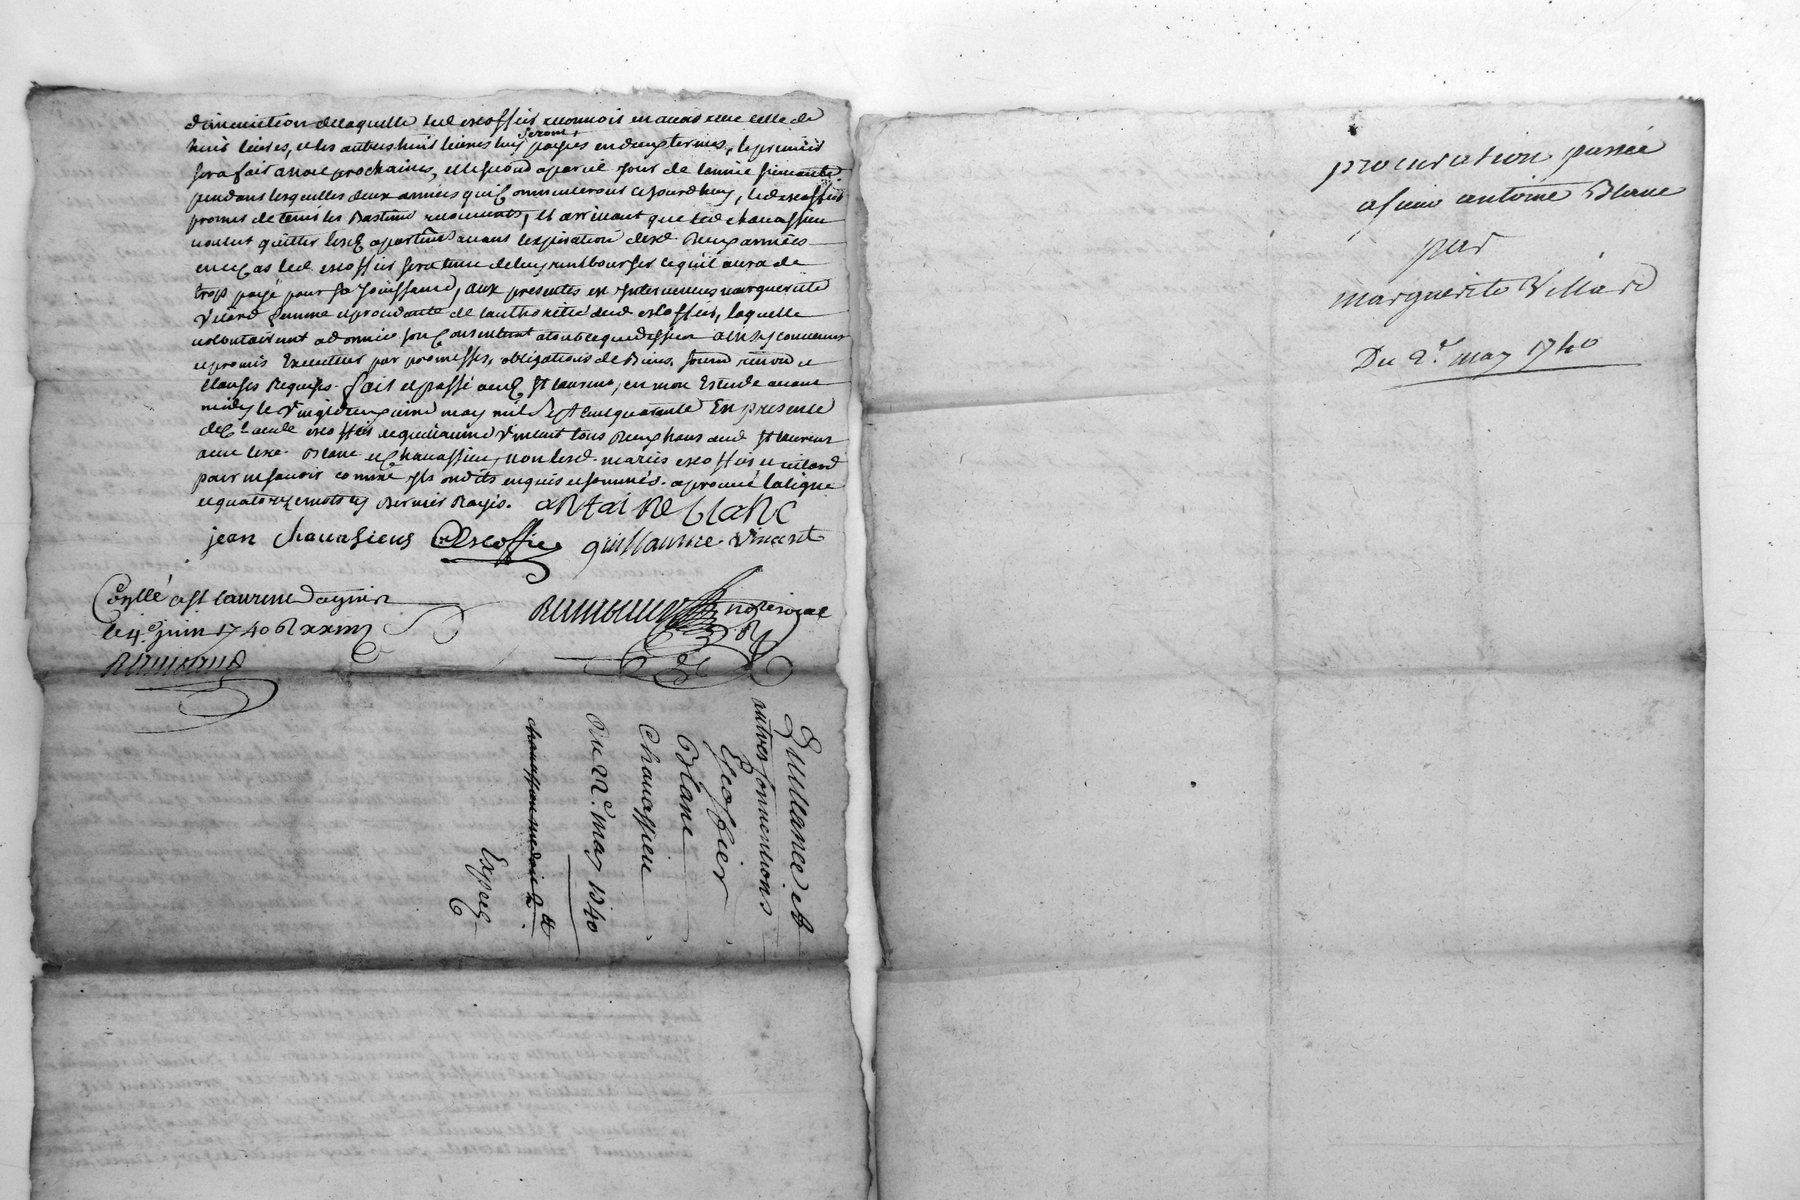 diminution de laquelle led escoffier reconnois en avoir reçu celle de
huit livres, et les autres huit livres luy seront payées en deux termes, le premier
sera fait a noel prochaine, et le second a pareil jour de l'année suivante
pendant lesquelles deux années qui commenceront cejourdhuy, led escoffier
promet de tenir les bastiments, et arrivant que led chavassieu
voulut quitter lesd apartiments avant l'expiration desd deux années
en ce cas led escoffier sera tenu de luy rembourser ce qu'il aura de
trop payé pour sa jouissance, aux presentes est intervenue marguerite
vilard femme et procedante de l'authorité dud escoffier, laquelle
volontairement a donné son consentement a tout ce que dessus ainsy convenu
et promis executer par promesses, obligations de biens, soumd renond et
clauses requises. fait et passé aud St laurent, en mon Estude avant
midy le vingt deuxieme may mil sept cent quarante En presence
de escoffier et guillaume vincent tous deux dud St laurent
avec lesd. blanc et chavassieu, non lesd. mariés escoffier et vilard
pour ne savoir comme ils ont dit enquis et sommés. aprouvé la ligne
et quatorze mots cy dernier Rayés. antoine blanc
jean chavasieus Escoffier guillaume vincent
Conllé a St laurent dagniz
le 4e juin 1740
Rimbourg
Rimbourg nore royal
Quittance et
autres conventions
Escoffier
Blanc
Chavassieu
Du 22e may 1740
Exped
procuration passée
a sieur antoine Blanc
par
marguerite Villard
Du 2e may 1740